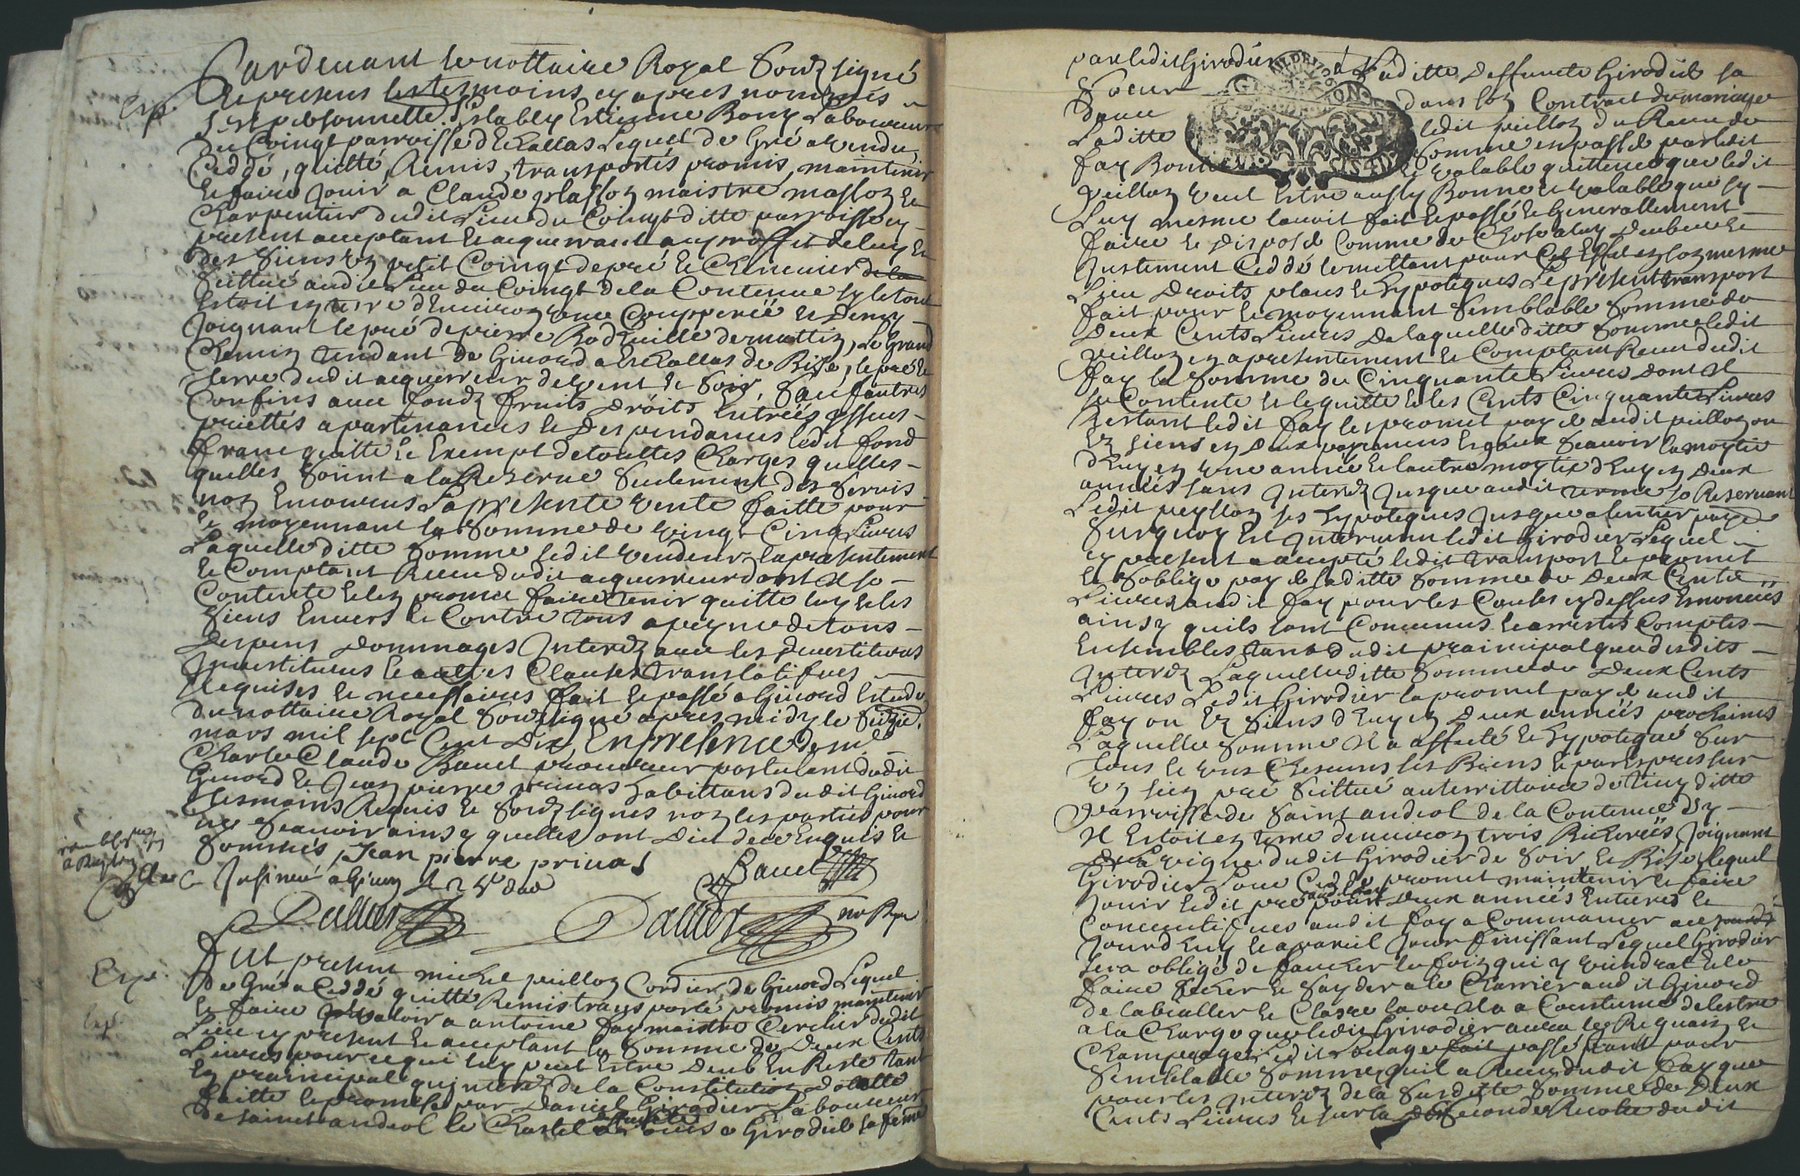 Pardevant le nottaire Royal Soubz signé
Et presens les tesmoins cy apres nommés
S'est personnellem. Estably Estienne Bony Laboureur
du Coingt parroisse d'Echallas Lequel de Gré a vendu,
Ceddé, quitté, Remis, transportés promis, maintenir
Et faire Jouir a Claude maistre masson et
Charpentier dudit Lieu du Coingt ditte parroisse cy
present acceptant et acquerant au proffit de luy et
des Siens un petit Coingt de pré et Chenevier
Scittué audit Lieu du Coingt de la Contenue sy le tout
Estoit en terre d'Environ une Coupperée et demy
Joignant le pré de pierre de mattin, Le Grand
Chemin tendant de Givord a Eschallas de Bize, le pré et
terre dudit acquerreur de vent et Soir, Sauf autres
Confins avec fondz fruits droits Entrées yssues
priettés apartinances et despendances ledit fond
franc quitte et Exempt de touttes Charges quelles
quelles Soint a la Reserve Seulement des Servis
non Encourus La presente vente faitte pour
Et moyennant la Somme de vingt Cinq Livres
Laquelle ditte Somme ledit vendeur la presentement
Et Comptant Receu dudit acquerreur dont il se
Contente et len promet faire tenir quitte luy et les
Siens Envers et Contre tous a peyne de tous
despens dommages Interedz avec les devestitures
Investitures et autres Clauses translatifves
Requises et necessaires fait et passé a Givord Estude
du nottaire Royal Soubzsigné apres midy le
mars mil sept Cent Dix, En presence de mre
Charle Claude Bavet procureur postulant dudit
Givord et Jean pierre privas habittans dudit Givord
tesmoins Requis et Soubz signes non les parties pour
ne Scavoir ainsy quelles ont Dit de ce Enquis et
Sommés Jean pierre privas
Bavet
Insinué a Givors
Dallier
Dallier no Ryal
Exp.
Fut present michel peillon Cordier de Givord Lequel
de Gré a Ceddé quitté Remis transporté promis maintenir
Et faire valoir a antoine fay maistre Cerclier dudit
Lieu cy present et acceptant la Somme de deux Cents
Livres pour ce qui luy peut Estre deub En Reste tant
En praincipal qu'Interedz de la Constitution dotalle
faitte et promise par Daniel Girodier Laboureur
de Saint andeol le Chastel a Girodier sa femme
Exp.
par ledit Girodier a Laditte deffuncte Girodier sa
Soeur dans son Contract de mariage
avec ledit peillon du Receu de
Laditte Somme en passé par ledit
fay Bonne et valable quittence que ledit
peillon veut Estre aussy Bonne et valable que sy
Luy mesme lavoit fait et passé et Generallement
faire et disposer Comme de Chose a luy deube et
Justement Ceddé le mettant pour Cet Effet en son mesme
Lieu Droits place et hypoteques Le present transport
fait pour et moyennant Semblable Somme de
Deux Cents Livres de laquelle ditte Somme ledit
peillon en a presentement et Comptant Receu dudit
fay la Somme de Cinquante Livres dont il
se Contente et le quitte et les Cents Cinquante Livres
Restant ledit fay les promet payer audit peillon ou
Es Siens en deux payemens Egaux Scavoir la moytié
d'huy en une année et lautre moytié d'huy en deux
années sans Interedz Jusque audit terme se Reservant
Ledit peyllon ses hypoteques Jusque a lentier payé
Surquoy Est Intervenu ledit Girodier Lequel
cy present a accepté ledit transport et promet
Et s'oblige payer laditte Somme de deux Cents
Livres audit fay pour les Causes cy dessus Enoncées
ainsy quils sont Convenus et arrestés Comptes
Ensembles tant dudit prainicipal que desdits
Interedz Laquelle ditte Somme de Deux Cents
Livres Ledit Girodier la promet payer audit
fay ou Es Siens d'huy en Deux années prochaines
Laquelle Somme il a affecté et hypotequé Sur
tous et uns Chescuns ses Biens et par Expres sur
un sien pré Scittué au territtoire de ditte
parroisse de Saint andeol de la Contenue sy
Il Estoit en terre d'environ trois Bicherées Joignant
La vigne dudit Girodier de Soir et Bize, lequel
Girodier promet maintenir et faire
Jouir ledit pré pour Deux années Entieres et
Consecutifves audit fay a Commancer
Jourd'huy et a pareil Jour finissant Lequel Girodier
sera obligé de faucher le foin qui y viendrat et le
faire secher et Charrier audit Givord
de Coustume de lestre
a la Charge que ledit Girodier aura le Regain et
Champeage passé pour
Semblable Somme quil a Receu dudit fay que
pour les Interedz de la Susditte Somme de deux
Cents Livres et sur la Seconde Recolte dudit